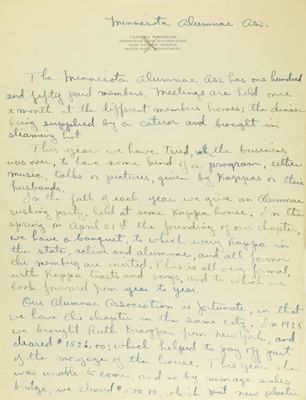 Minnesota Alumnae Ass.
The Minnesota Alumnae Ass. has one hundred
and fifty paid members. Meetings are held once
a month at the different members homes; the dinner
being supplied by a caterer and brought in
steaming hot.
This year we have tried, after the business
was over, to have some kind of a program, either
music, talks or pictures, given by Kappas or their
husbands.
In the fall of each year we give an Alumnae
rushing party, held at some Kappa house. In the
spring on April 21st the founding of our chapter,
we have a banquet, to which every Kappa in
the state, active and alumnae, and all former
chi members are invited. This is all very formal,
with Kappa toasts and songs, and to which we
look forward from year to year.
Our Alumnae Association is fortunate, in that
we have chi chapter in the same city. In 1925
we brought Ruth Draper from New York, and
cleared $1526.00; which helped to pay off part
of the mortgage of the house. This year she
was unable to come, and so by rummage sales
bridge, we cleared which put new plaster